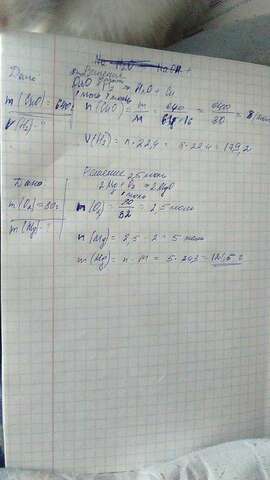 Na H2O NaOH +
Дано Решение
CuO + H2 = H2O + Cu
m(CuO) = 640г n(CuO) = m/M = 640/64+16 = 640/80 = 8 моль
V(H2) - ?
V(H2) = n · 22,4 = 8 · 22,4 = 179,2
Решение 2,5 моль
Дано 2Mg + O2 = 2MgO
1 моль
m(O2) = 80г n(O2) = 80/32 = 2,5 моль
m(Mg) - ?
n(Mg) = 2,5 · 2 = 5 моль
m(Mg) = n · M = 5 · 24,3 = 121,5 г